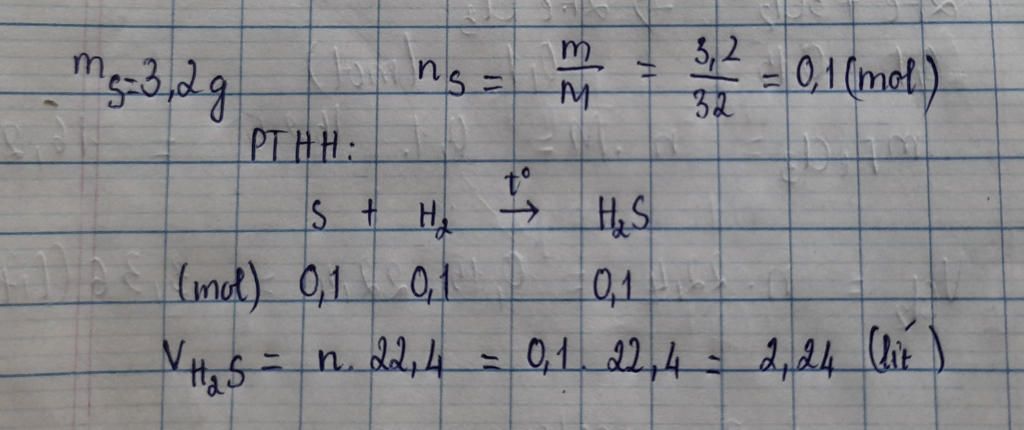 mS=3,2g nS = m/M = 3,2/32 = 0,1 (mol)
PTHH:
S + H₂ →(t°) H₂S
(mol) 0,1 0,1 0,1
V_H₂S = n. 22,4 = 0,1. 22,4 = 2,24 (lít)